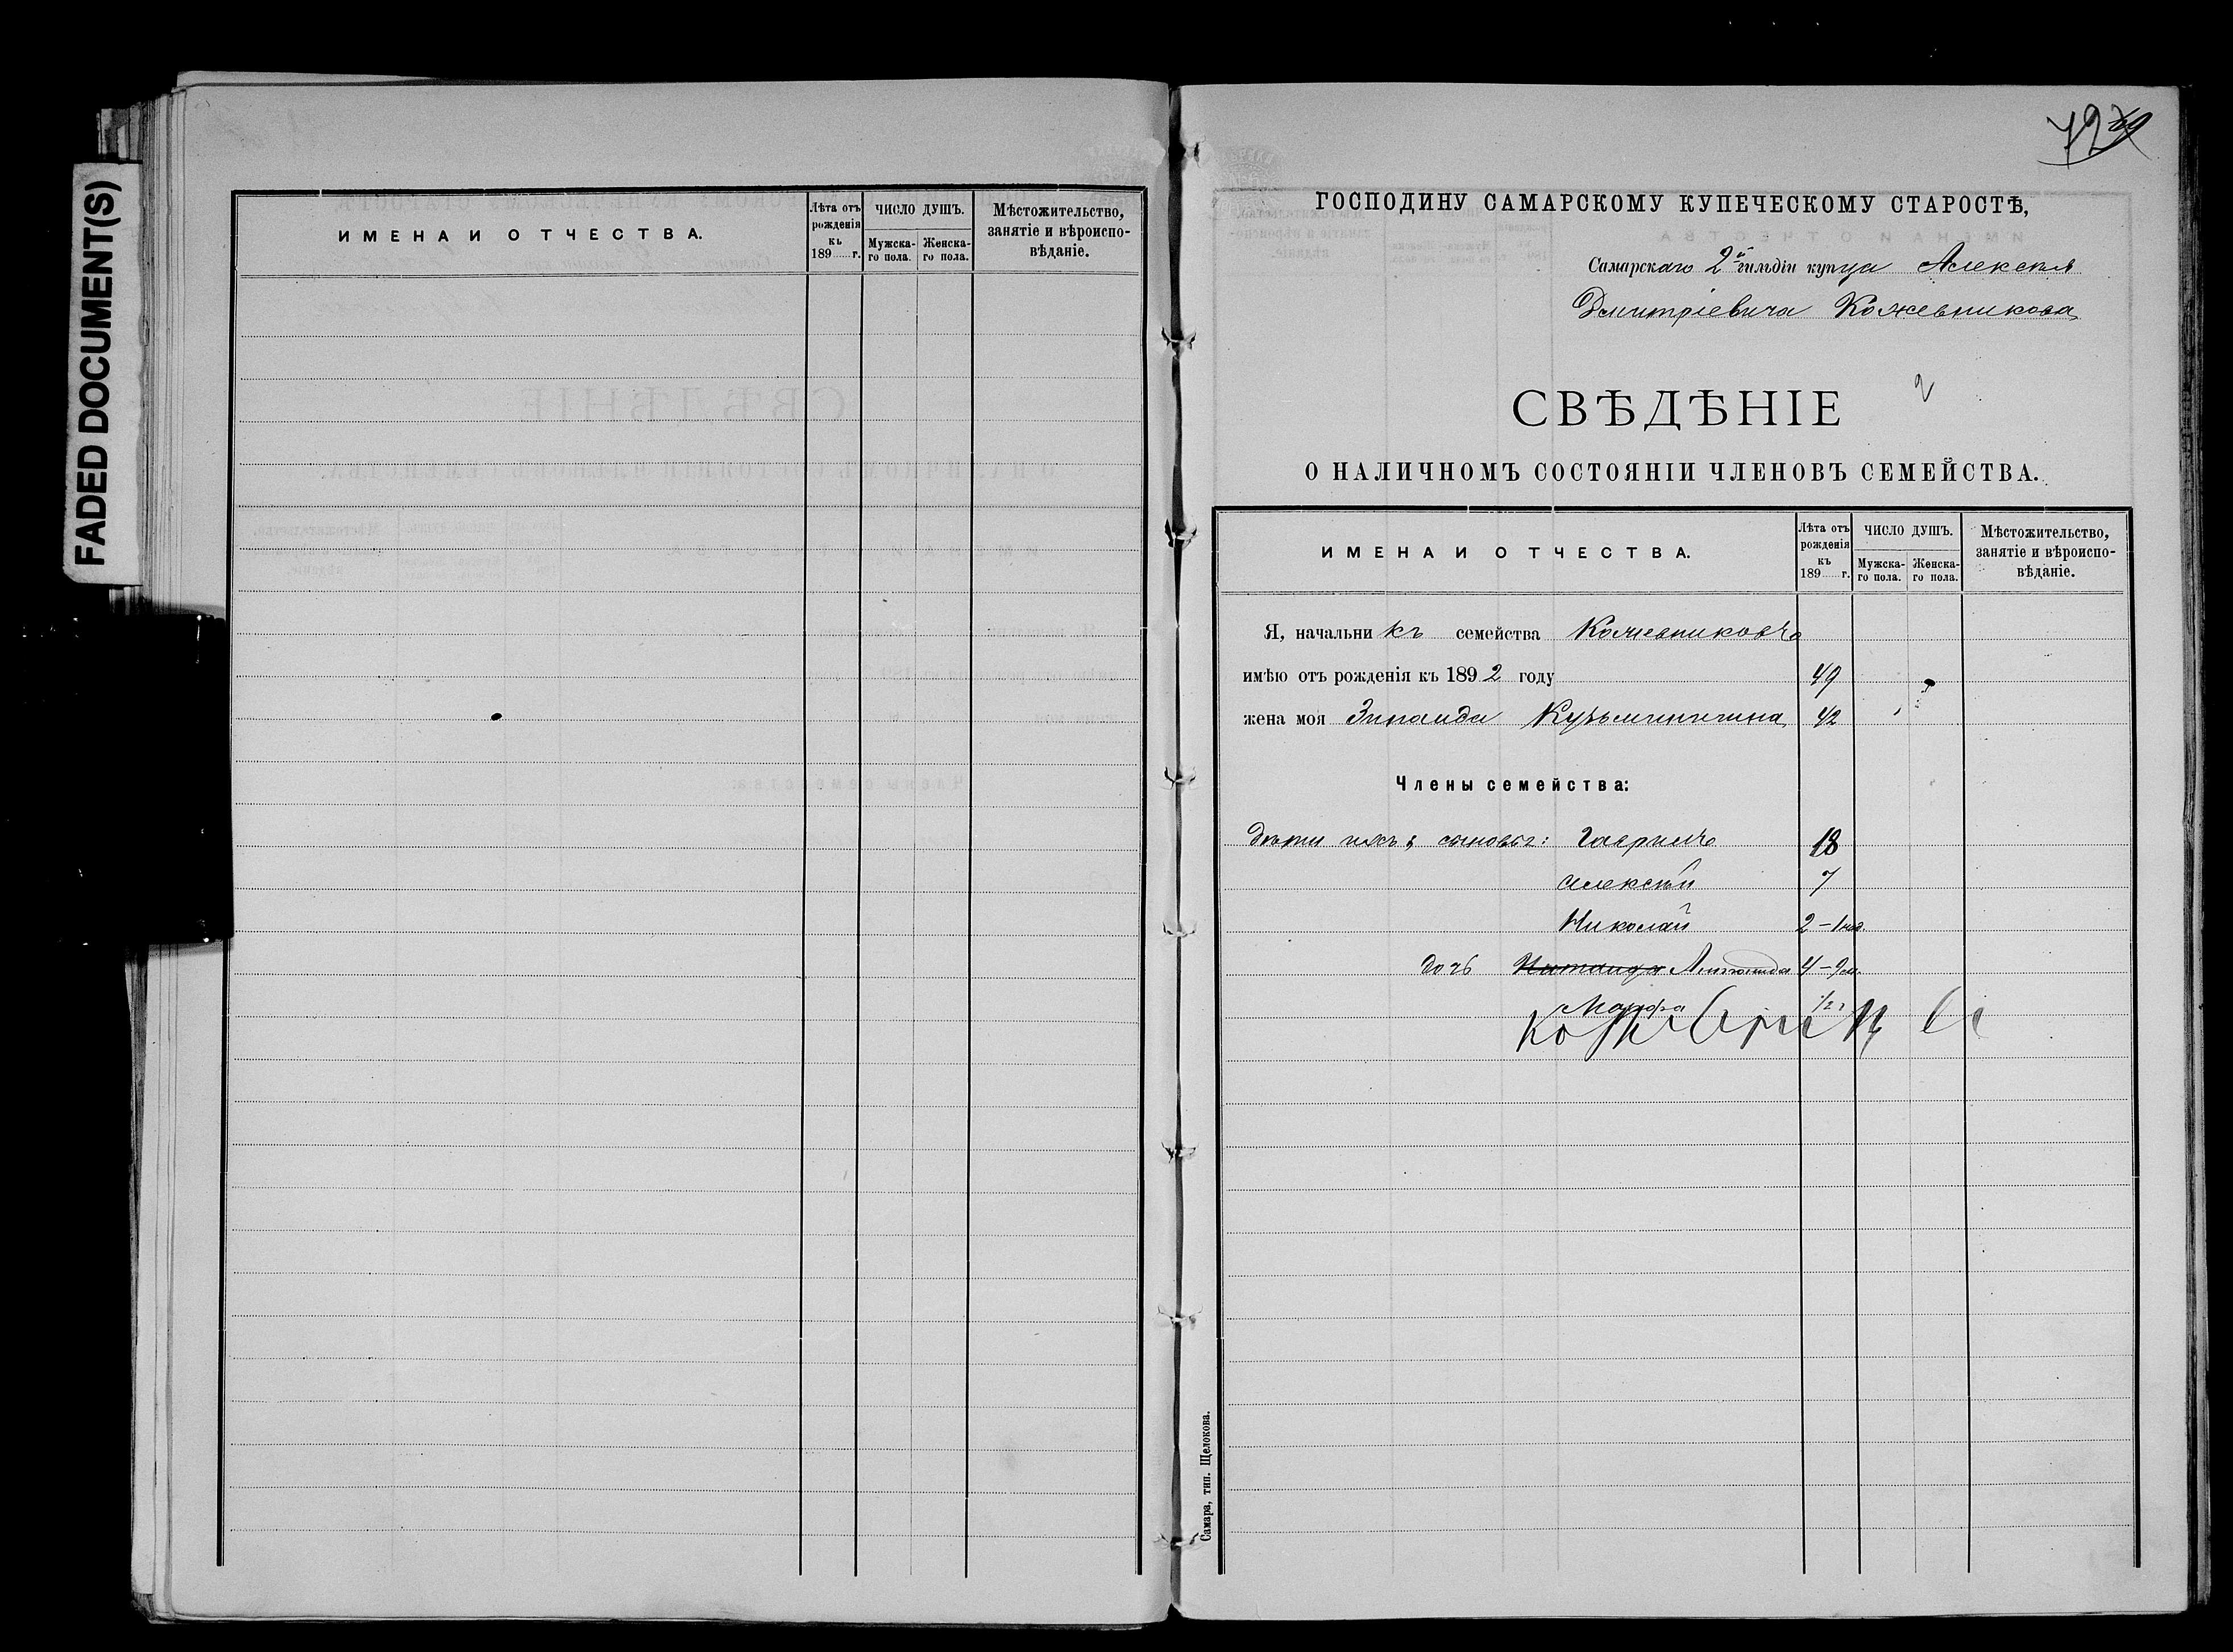 FADED DOCUMENT(S)
ИМЕНА И ОТЧЕСТВА.
Лѣта отъ рожденія къ 189 г.
ЧИСЛО ДУШЪ.
Мужска-го пола.
Женска-го пола.
Мѣстожительство, занятіе и вѣроиспо-вѣданіе.
72
ГОСПОДИНУ САМАРСКОМУ КУПЕЧЕСКОМУ СТАРОСТѢ,
Самарскаго 2й гильдіи купца Алексѣя
Дмитріевича Кожевникова
СВѢДѢНІЕ
О НАЛИЧНОМЪ СОСТОЯНІИ ЧЛЕНОВЪ СЕМЕЙСТВА.
ИМЕНА И ОТЧЕСТВА.
Лѣта отъ рожденія къ 189 г.
ЧИСЛО ДУШЪ.
Мужска-го пола.
Женска-го пола.
Мѣстожительство, занятіе и вѣроиспо-вѣданіе.
Я, начальникъ семейства Кожевниковъ
имѣю отъ рожденія къ 1892 году 49
жена моя Зинаида Кузьминична 42
Члены семейства:
Дѣти ихъ: сыновья: Гавріилъ 18
Алексѣй 7
Николай 2 – 1 мѣс.
дочь 4 – 9 м.
Марфа 1/2
Самара, тип. Щелокова.